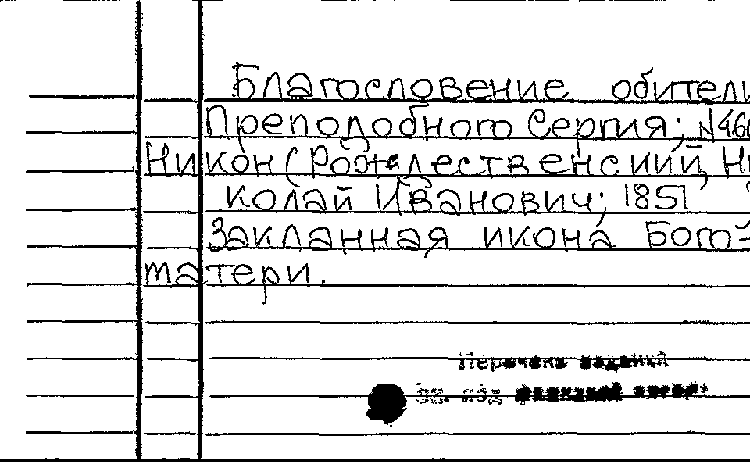 Благословение обители
Преподобного Сергия; №46
Никон (Рождественский, Ни
колай Иванович; 1851
Закланная икона Бого-
матери.
Перечень изданий
см. под